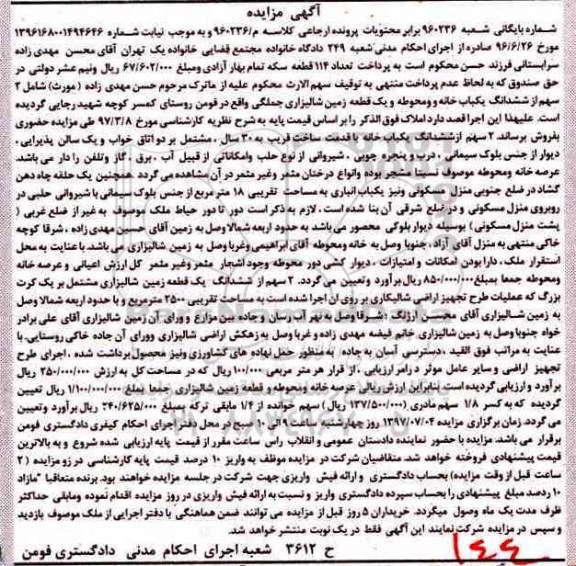 آگهی مزایده
شماره بایگانی شعبه ۹۶۰۲۳۶ برابر محتویات پرونده ارجاعی کلاسه م/۹۶۰۲۳۶ و به موجب نیابت شماره ۱۳۹۶۱۶۸۰۰۱۴۹۴۶۴۶
مورخ ۹۶/۶/۲۶ صادره از اجرای احکام مدنی شعبه ۲۴۹ دادگاه خانواده مجتمع قضایی خانواده یک تهران آقای محسن مهدی زاده
سرابستانی فرزند حسن محکوم است به پرداخت تعداد ۱۱۴ قطعه سکه تمام بهار آزادی ومبلغ ۶۷/۶۰۲/۰۰۰ ریال ونیم عشر دولتی در
حق صندوق که به لحاظ عدم پرداخت منتهی به توقیف سهم الارث محکوم علیه از ماترک مرحوم حسن مهدی زاده (مورث) شامل ۲
سهم از ششدانگ یکباب خانه ومحوطه و یک قطعه زمین شالیزاری جملگی واقع در فومن روستای کمسر کوچه شهید رجایی گردیده
است. علیهذا این اجرا قصد دارد املاک فوق الذکر را بر اساس قیمت پایه به شرح نظریه کارشناسی مورخ ۹۷/۳/۸ طی مزایده حضوری
بفروش برساند ۲ سهم از ششدانگ یکباب خانه با قدمت ساخت قریب به ۳۰ سال، مشتمل بر دو اتاق خواب و یک سالن پذیرایی،
دیوار از جنس بلوک سیمانی، درب و پنجره چوبی، شیروانی از نوع حلب وامکاناتی از قبیل آب، برق، گاز وتلفن را دار می باشد.
عرصه خانه ومحوطه موصوف نسبتا مشجر بوده وانواع درختان مثمر وغیر مثمر در آن مشاهده می گردد همچنین یک حلقه چاه دهن
گشاد در ضلع جنوبی منزل مسکونی ونیز یکباب انباری به مساحت تقریبی ۱۸ متر مربع از جنس بلوک سیمانی با شیروانی حلبی در
روبروی منزل مسکونی و در ضلع شرقی آن بنا شده است. لازم به ذکر است دور تا دور حیاط ملک موصوف به غیر از ضلع غربی (
پشت منزل مسکونی) بوسیله دیوار بلوکی محصور می باشد به حدود اربعه شمالا وصل به زمین آقای حسین مهدی زاده، شرقا کوچه
خاکی منتهی به منزل آقای آزاد، جنوبا وصل به خانه ومحوطه آقای ابراهیمی وغربا وصل به زمین شالیزاری می باشد. با عنایت به محل
استقرار ملک، دارا بودن امکانات و امتیازات، دیوار کشی دور محوطه وجود اشجار مثمر وغیر مثمر کل ارزش اعیانی و عرصه خانه
ومحوطه جمعا بمبلغ ۸۵۰/۰۰۰/۰۰۰ ریال برآورد وتعیین می گردد. ۲ سهم از ششدانگ یک قطعه زمین شالیزاری مشتمل بر یک کرت
بزرگ که عملیات طرح تجهیز اراضی شالیکاری بر روی آن اجرا شده است به مساحت تقریبی ۲۵۰۰ مترمربع و با حدود اربعه شمالا وصل
به زمین شالیزاری آقای محسن ارژنگ، شرقا وصل به نهر آب رسان وجاده بین مزارع و ورای آن زمین شالیزاری آقای علی برادر
خواه جنوبا وصل به زمین شالیزاری خانم فیضه مهدی زاده و غربا وصل به زهکش اراضی شالیزاری وورای آن جاده خاکی روستایی. با
عنایت به مراتب فوق القید، دسترسی آسان به جاده، به منظور حمل نهاده های کشاورزی ونیز محصول برداشت شده، اجرای طرح
تجهیز اراضی و سایر عامل موثر در امر ارزیابی، از قرار هر متر مربعی ۱۰۰/۰۰۰ ریال که در مساحت کل به ارزش ۲۵۰/۰۰۰/۰۰۰ ریال
برآورد و ارزیابی گردیده است بنابراین ارزش ریالی عرصه خانه ومحوطه و قطعه زمین شالیزاری جمعا بمبلغ ۱/۱۰۰/۰۰۰/۰۰۰ ریال تعیین
گردیده که به کسر ۱/۸ سهم مادری (۱۳۷/۵۰۰/۰۰۰ ریال) سهم خوانده از ۱/۴ مابقی ترکه بمبلغ ۲۴۰/۶۲۵/۰۰۰ ریال برآورد وتعیین
می گردد. زمان برگزاری مزایده ۱۳۹۷/۰۷/۰۴ روز چهارشنبه ساعت ۹ الی ۱۰ صبح در محل دفتر اجرای احکام کیفری دادگستری فومن
برقرار می باشد. مزایده با حضور نماینده دادستان عمومی و انقلاب راس ساعت مقرر از قیمت پایه ارزیابی شده شروع و به بالاترین
قیمت پیشنهادی فروخته خواهد شد. متقاضیان شرکت در مزایده موظف به واریز ۱۰ درصد قیمت پایه کارشناسی در روز مزایده (۲
ساعت قبل از وقت مزایده) بحساب دادگستری و ارائه فیش واریزی جهت شرکت در جلسه مزایده خواهند بود. برنده متعاقبا "مازاد
۱۰ درصد مبلغ پیشنهادی را بحساب سپرده دادگستری واریز و نسبت به ارائه فیش واریزی در روز مزایده اقدام نموده ومابقی حداکثر
ظرف مدت یک ماه وصول میگردد. خریداران ۵ روز قبل از مزایده می توانند ضمن هماهنگی با دفتر اجرایی از ملک موصوف بازدید
و سپس در مزایده شرکت نمایند این آگهی فقط در یک نوبت منتشر خواهد شد.
ح ۳۶۱۲ شعبه اجرای احکام مدنی دادگستری فومن
۱۴۴